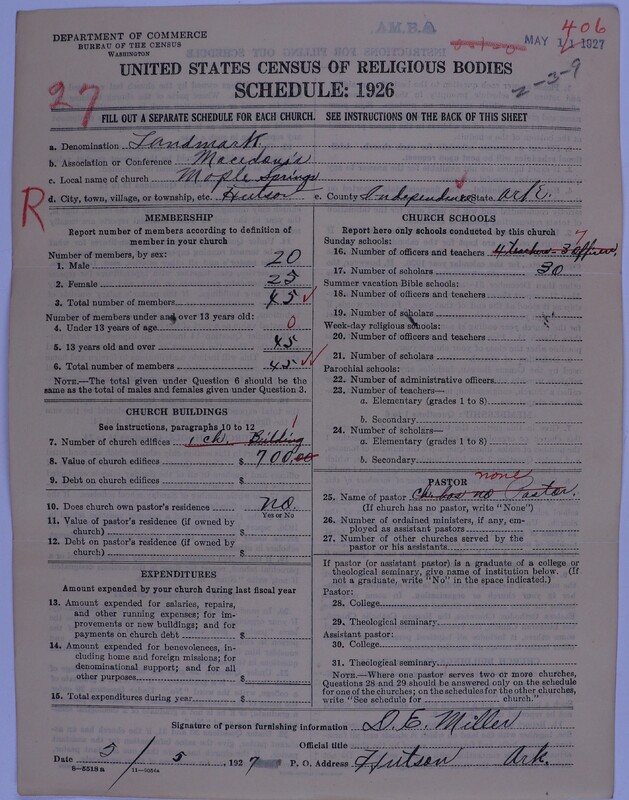 DEPARTMENT OF COMMERCE
BUREAU OF THE CENSUS
WASHINGTON
406
MAY 11 1927
UNITED STATES CENSUS OF RELIGIOUS BODIES
SCHEDULE: 1926
2-3-9
27
FILL OUT A SEPARATE SCHEDULE FOR EACH CHURCH. SEE INSTRUCTIONS ON THE BACK OF THIS SHEET
a. Denomination Landmark
b. Association or Conference Macedonia
c. Local name of church Mople Springs
d. City, town, village, or township, etc. Hutson e. County Independence State Ark
R
MEMBERSHIP
Report number of members according to definition of
member in your church
Number of members, by sex:
1. Male 20
2. Female 25
3. Total number of members 45
Number of members under and over 13 years old:
4. Under 13 years of age 0
5. 13 years old and over 45
6. Total number of members 45
NOTE.—The total given under Question 6 should be the
same as the total of males and females given under Question 3.
CHURCH BUILDINGS
See instructions, paragraphs 10 to 12
7. Number of church edifices 1 ch. Building 1
8. Value of church edifices $ 700.00
9. Debt on church edifices $
10. Does church own pastor's residence? no.
Yes or No
11. Value of pastor's residence (if owned by
church) $
12. Debt on pastor's residence (if owned by
church) $
EXPENDITURES
Amount expended by your church during last fiscal year
13. Amount expended for salaries, repairs,
and other running expenses; for im-
provements or new buildings; and for
payments on church debt $
14. Amount expended for benevolences, in-
cluding home and foreign missions; for
denominational support; and for all
other purposes $
15. Total expenditures during year $
CHURCH SCHOOLS
Report here only schools conducted by this church
Sunday schools: 7
16. Number of officers and teachers 4 teachers - 3 officers
17. Number of scholars 30
Summer vacation Bible schools:
18. Number of officers and teachers
19. Number of scholars
Week-day religious schools:
20. Number of officers and teachers
21. Number of scholars
Parochial schools:
22. Number of administrative officers
23. Number of teachers—
a. Elementary (grades 1 to 8)
b. Secondary
24. Number of scholars—
a. Elementary (grades 1 to 8)
b. Secondary
PASTOR
none
25. Name of pastor Ch. has no Pastor.
(If church has no pastor, write "None")
26. Number of ordained ministers, if any, em-
ployed as assistant pastors
27. Number of other churches served by the
pastor or his assistants
If pastor (or assistant pastor) is a graduate of a college or
theological seminary, give name of institution below. (If
not a graduate, write "No" in the space indicated.)
Pastor:
28. College
29. Theological seminary
Assistant pastor:
30. College
31. Theological seminary
NOTE.—Where one pastor serves two or more churches,
Questions 28 and 29 should be answered only on the schedule
for one of the churches; on the schedules for the other churches,
write "See schedule for church."
Signature of person furnishing information D. E. Miller
Official title
Date 5/5, 1927 P. O. Address Hutson Ark.